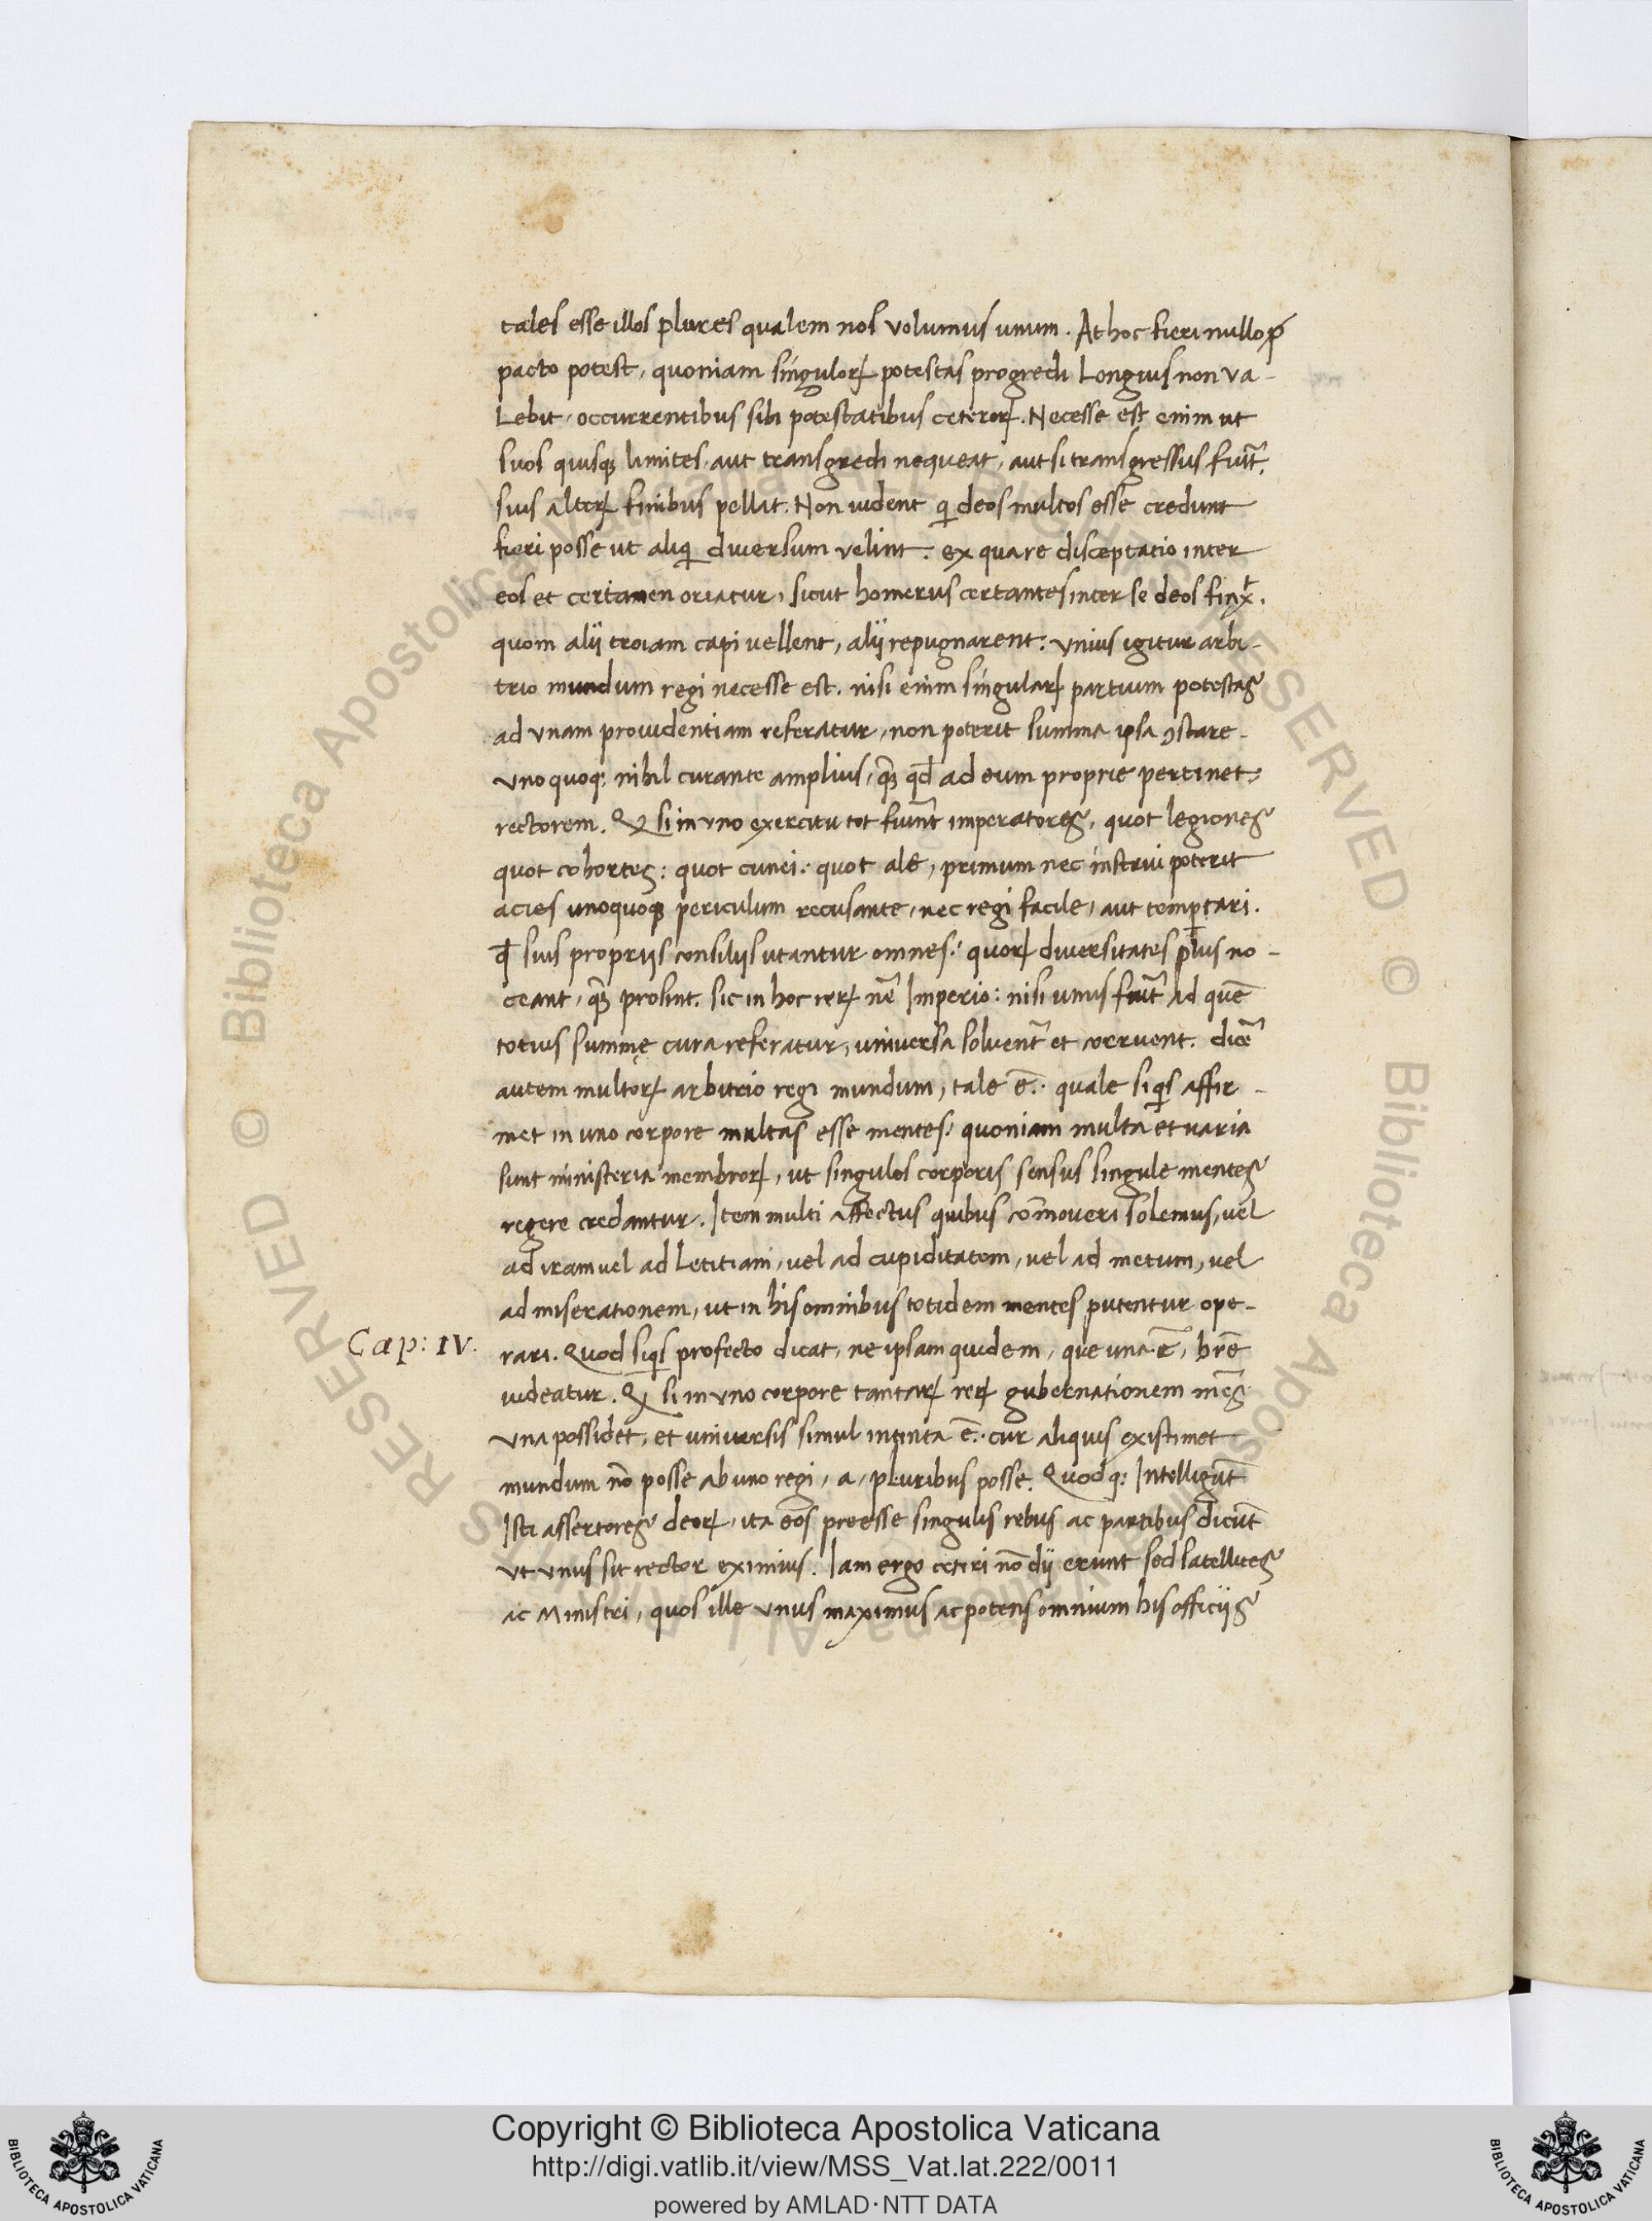 tales esse illos plures qualem nos volumus unum. At hoc fieri nullo p
pacto potest, quoniam singuloꝝ potestas progredi Longius non va-
Lebit, occurrentibus sibi potestatibus ceteroꝝ. Necesse est enim ut
suos quisqꝫ limites, aut transgredi nequeat, aut si transgressus fuit̃.
suis alteꝝ finibus pellat. Non uident qi deos multos esse credunt
fieri posse ut aliqi diuersum velint: ex qua re disceptatio inter
eos et certamen oriatur, sicut homerus certantes inter se deos finxt.
quom alij troiam capi vellent, alij repugnarent: Vnius igitur arbi-
trio mundum regi necesse est. nisi enim singulaꝝ partium potestas
ad vnam prouidentiam referatur, non poterit summa ipsa ꝯstare.
vno quoqꝫ nihil curante amplius, qꝫ qd̄ ad eum proprie pertinet:
rectorem. Qͥ si in vno exercitu tot fuint̃ imperatores, quot legiones
quot cohortes: quot cunei: quot ale, primum nec instrui poterit
acies unoquoqꝫ periculum recusante, nec regi facile, aut temptari.
qd̄ suis proprijs consilijs utantur omnes: quoꝝ diuersitates plus no-
ceant, qꝫ prosint. sic in hoc reꝝ nẽ Imperio: nisi unus fuit̃ ad quẽ
totius summę cura referatur, universa soluent̃ et corruent. dicẽ
autem multoꝝ arbitrio regi mundum, tale ẽ: quale siqͥs affir-
met in uno corpore multas esse mentes: quoniam multa et uaria
sunt ministeria membroꝝ, ut singulos corporis sensus singule mentes
regere credantur. Item multi affectus quibus cõmoueri solemus, uel
ad iram uel ad Letitiam, uel ad cupiditatem, uel ad metum, uel
ad miserationem, ut in his omnibus totidem mentes putentur ope-
Cap: IV.
rari. Quod siqͥs profecto dicat, ne ipsam quidem, que una ẽ, hr̃e
uideatur. Qͥ si in vno corpore tantaꝝ reꝝ gubernationem mẽs
vna possidet, et universis simul intenta ẽ: cur aliquis existimet
mundum nõ posse ab uno regi, a, pluribus posse. Quod qꝫ Intelligũt
Isti assertores deoꝝ, ita eos preesse singulis rebus ac partibus dicũt
vt vnus sit rector eximius. Iam ergo ceteri nõ dij erunt sed satellites
ac Ministri, quos ille vnus maximus ac potens omnium his officijs
Copyright © Biblioteca Apostolica Vaticana
http://digi.vatlib.it/view/MSS_Vat.lat.222/0011
powered by AMLAD·NTT DATA
BIBLIOTECA APOSTOLICA VATICANA
BIBLIOTECA APOSTOLICA VATICANA